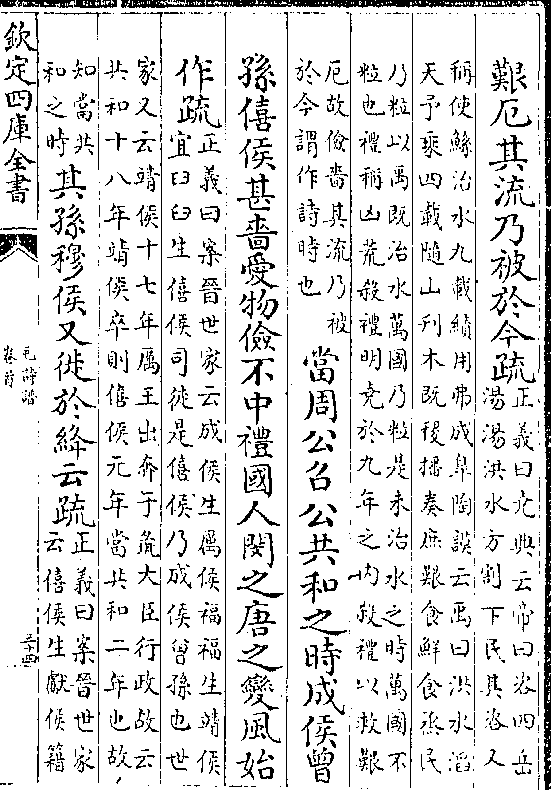 艱厄其流乃被於今疏正義曰堯典云帝曰咨四岳
湯湯洪水方割下民其咨又
稱使鯀治水九載績用弗成臯陶謨云禹曰洪水滔
天予乘四載隨山刋木既稷播奏庶艱食鮮食烝民
乃粒以禹既治水萬國乃粒是未治水之時萬國不
粒也禮稱凶荒殺禮明堯於九年之内殺禮以救艱
厄故儉嗇其流乃被
於今謂作詩時也
當周公召公共和之時成侯曾
孫僖侯甚嗇愛物儉不中禮國人閔之唐之變風始
作疏正義曰案晉世家云成侯生厲侯福福生靖侯
宜臼臼生僖侯司徒是僖侯乃成侯曾孫也世
家又云靖侯十七年厲王出奔于彘大臣行政故云
共和十八年靖侯卒則僖侯元年當共和二年也故
知當共
和之時
其孫穆侯又徙於絳云疏正義曰案晉世家
云僖侯生獻侯籍
欽定四庫全書
毛詩譜
卷首
三十四